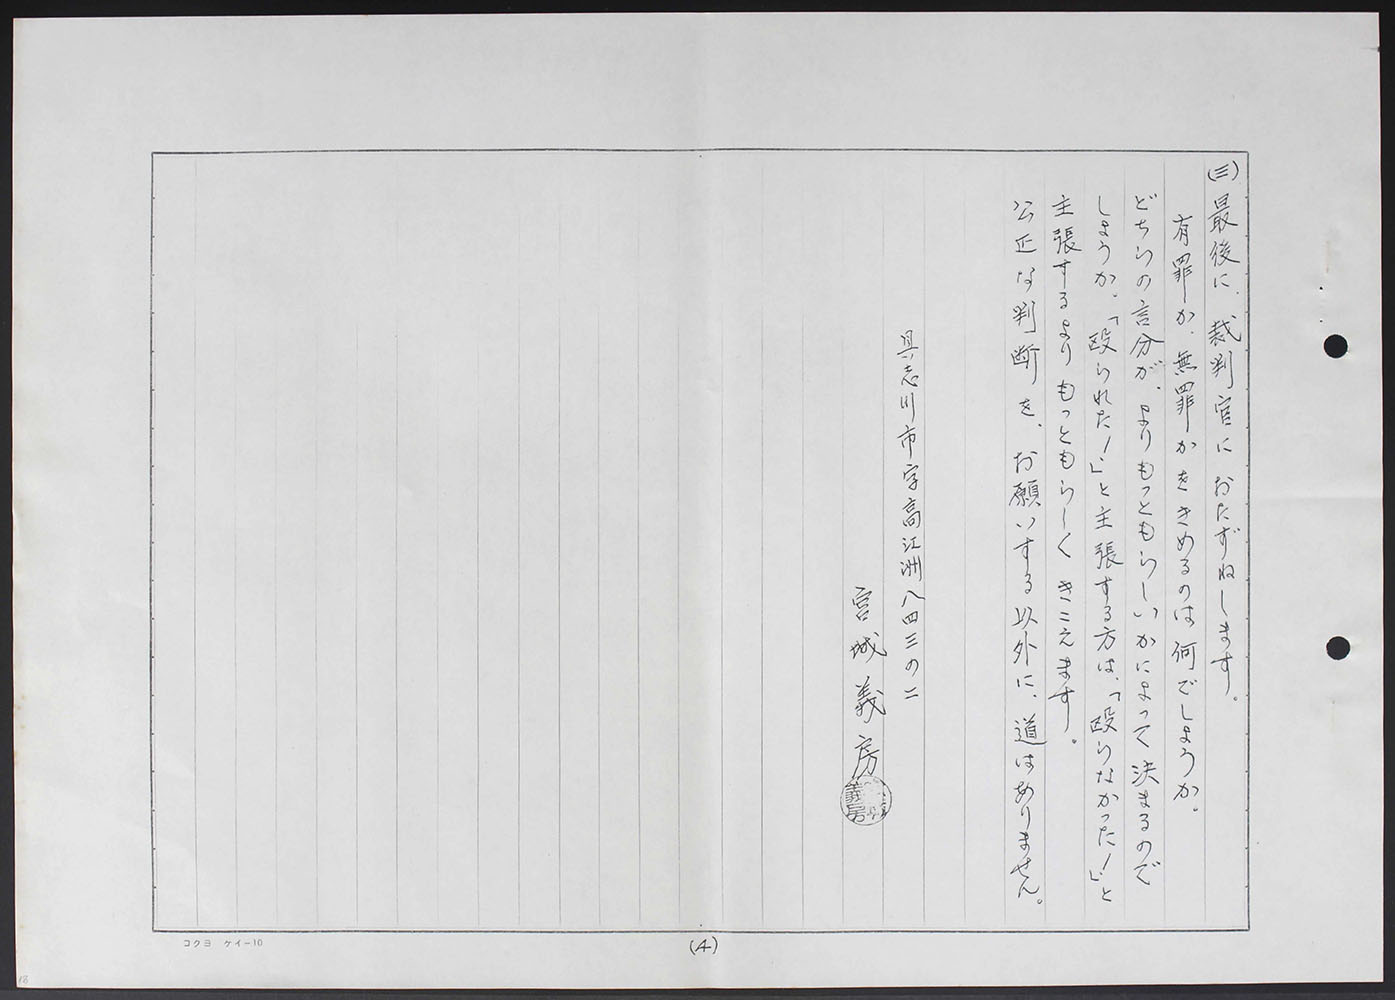 (三)最後に、裁判官におたずねします。
有罪か、無罪かをきめるのは何でしょうか。
どちらの言分が、よりもっともらしいかによって決まるので
しょうか。「殴られた！」と主張する方は、「殴らなかった！」と
主張するよりもっともらしくきこえます。
公正な判断を、お願いする以外に、道はありません。
具志川市字高江洲八四三の二
宮城義房
コクヨ ケイ-10
(4)
18